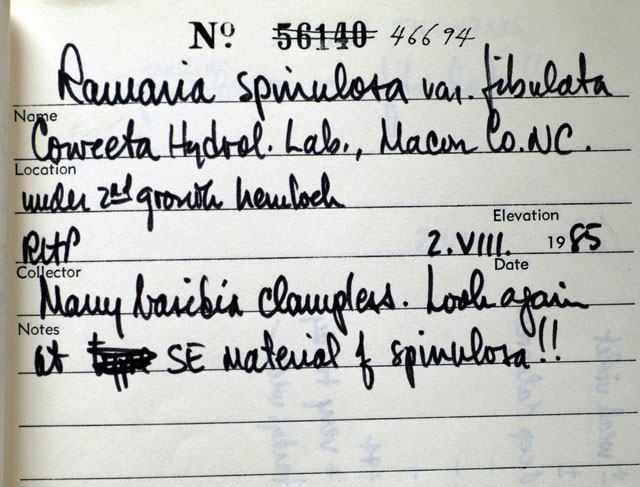 Nº 56140 46694
Ramaria spinulosa var. fibulata
Name
Coweeta Hydrol. Lab., Macon Co. NC.
Location
under 2nd growth hemlock
Elevation
RHP 2.VIII. 1985
Collector Date
Many basidia clampless. Look again
Notes
at SE material of spinulosa!!